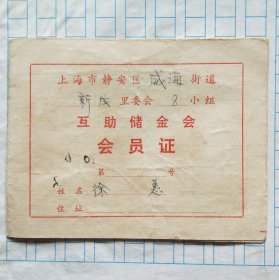 上海市静安区威海街道
新成里委会8小组
互助储金会
会员证
第 号
姓名 徐惠
住址